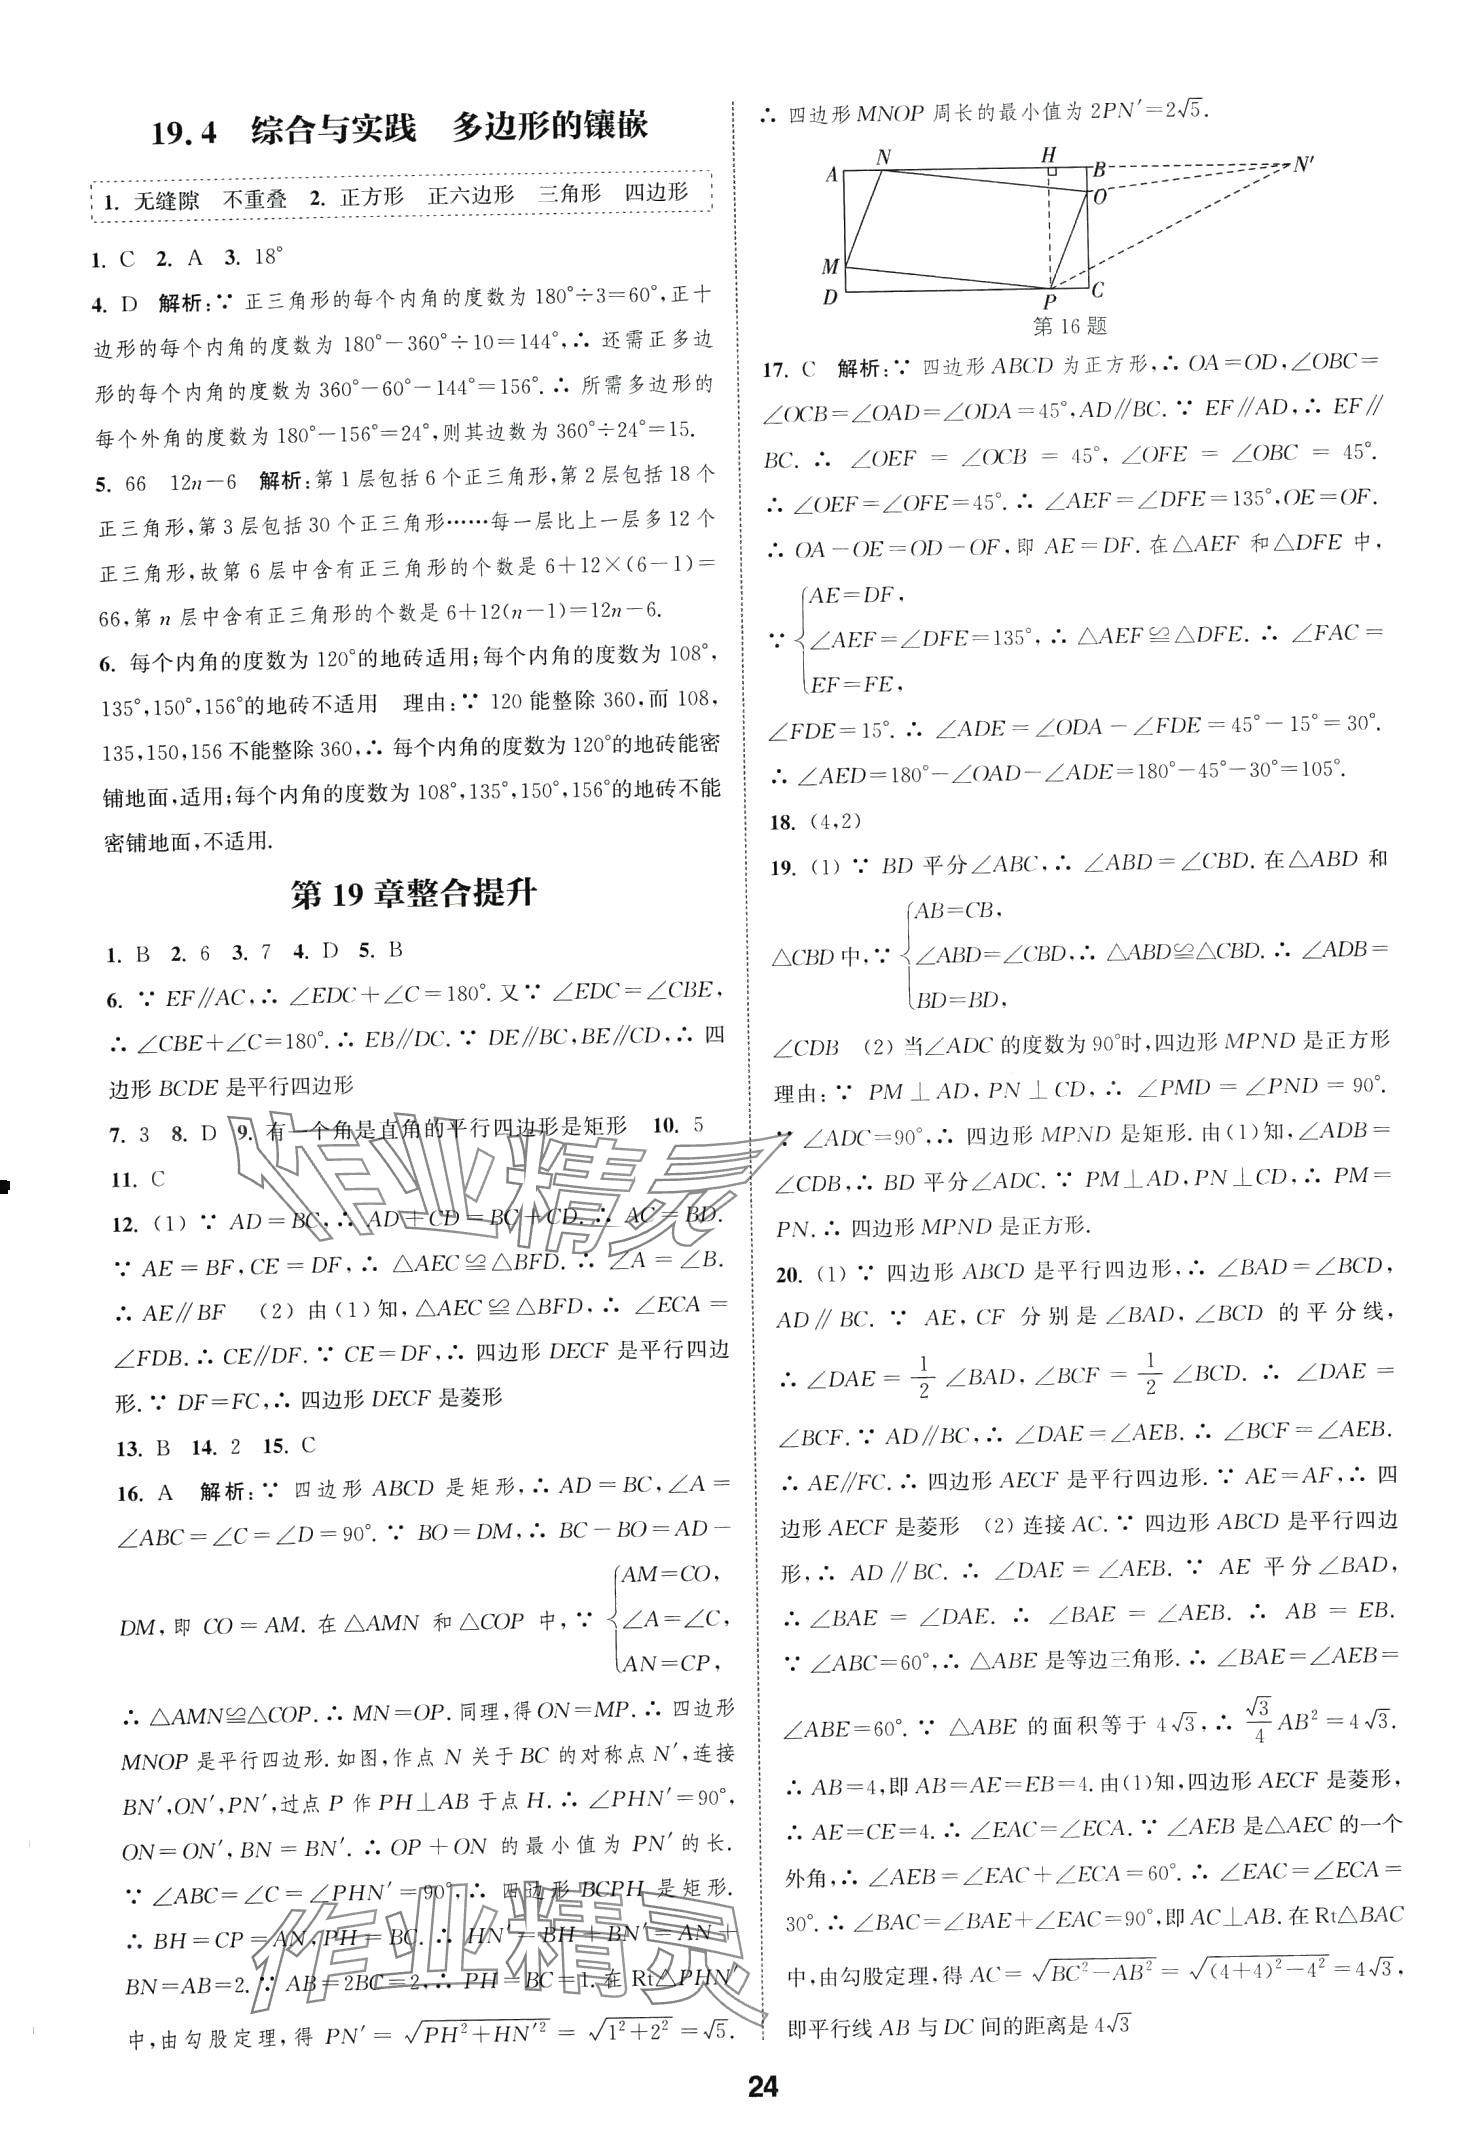 19.4 综合与实践 多边形的镶嵌
1. 无缝隙 不重叠 2. 正方形 正六边形 三角形 四边形
1. C 2. A 3. 18°
4. D 解析:∵ 正三角形的每个内角的度数为180°÷3=60°,正十
边形的每个内角的度数为180°-360°÷10=144°,∴ 还需正多边
形的每个内角的度数为360°-60°-144°=156°.∴ 所需多边形的
每个外角的度数为180°-156°=24°,则其边数为360°÷24°=15.
5. 66 12n-6 解析:第1层包括6个正三角形,第2层包括18个
正三角形,第3层包括30个正三角形……每一层比上一层多12个
正三角形,故第6层中含有正三角形的个数是6+12×(6-1)=
66,第n层中含有正三角形的个数是6+12(n-1)=12n-6.
6. 每个内角的度数为120°的地砖适用;每个内角的度数为108°,
135°,150°,156°的地砖不适用 理由:∵ 120能整除360,而108,
135,150,156不能整除360,∴ 每个内角的度数为120°的地砖能密
铺地面,适用;每个内角的度数为108°,135°,150°,156°的地砖不能
密铺地面,不适用.
第19章整合提升
1. B 2. 6 3. 7 4. D 5. B
6. ∵ EF∥AC,∴ ∠EDC+∠C=180°.又∵ ∠EDC=∠CBE,
∴ ∠CBE+∠C=180°.∴ EB∥DC.∵ DE∥BC,BE∥CD,∴ 四
边形BCDE是平行四边形
7. 3 8. D 9. 有一个角是直角的平行四边形是矩形 10. 5
11. C
12. (1) ∵ AD=BC,∴ AD+CD=BC+CD.∴ AC=BD.
∵ AE=BF,CE=DF,∴ △AEC≌△BFD.∴ ∠A=∠B.
∴ AE∥BF (2) 由(1)知,△AEC≌△BFD,∴ ∠ECA=
∠FDB.∴ CE∥DF.∵ CE=DF,∴ 四边形DECF是平行四边
形.∵ DF=FC,∴ 四边形DECF是菱形
13. B 14. 2 15. C
16. A 解析:∵ 四边形ABCD是矩形,∴ AD=BC,∠A=
∠ABC=∠C=∠D=90°.∵ BO=DM,∴ BC-BO=AD-
DM,即CO=AM.在△AMN和△COP中,∵ {AM=CO,
∠A=∠C,
AN=CP,
∴ △AMN≌△COP.∴ MN=OP.同理,得ON=MP.∴ 四边形
MNOP是平行四边形.如图,作点N关于BC的对称点N′,连接
BN′,ON′,PN′,过点P作PH⊥AB于点H.∴ ∠PHN′=90°,
ON=ON′,BN=BN′.∴ OP+ON的最小值为PN′的长.
∵ ∠ABC=∠C=∠PHN′=90°,∴ 四边形BCPH是矩形.
∴ BH=CP=AN,PH=BC.∴ HN′=BH+BN′=AN+
BN=AB=2.∵ AB=2BC=2,∴ PH=BC=1.在Rt△PHN′
中,由勾股定理,得PN′=√(PH²+HN′²)=√(1²+2²)=√5.
∴ 四边形MNOP周长的最小值为2PN′=2√5.
A N H B N′
O
M
D P C
第16题
17. C 解析:∵ 四边形ABCD为正方形,∴ OA=OD,∠OBC=
∠OCB=∠OAD=∠ODA=45°,AD∥BC.∵ EF∥AD,∴ EF∥
BC.∴ ∠OEF=∠OCB=45°,∠OFE=∠OBC=45°.
∴ ∠OEF=∠OFE=45°.∴ ∠AEF=∠DFE=135°,OE=OF.
∴ OA-OE=OD-OF,即AE=DF.在△AEF和△DFE中,
∵ {AE=DF,
∠AEF=∠DFE=135°,∴ △AEF≌△DFE.∴ ∠FAC=
EF=FE,
∠FDE=15°.∴ ∠ADE=∠ODA-∠FDE=45°-15°=30°.
∴ ∠AED=180°-∠OAD-∠ADE=180°-45°-30°=105°.
18. (4,2)
19. (1) ∵ BD平分∠ABC,∴ ∠ABD=∠CBD.在△ABD和
△CBD中,∵ {AB=CB,
∠ABD=∠CBD,∴ △ABD≌△CBD.∴ ∠ADB=
BD=BD,
∠CDB (2) 当∠ADC的度数为90°时,四边形MPND是正方形
理由:∵ PM⊥AD,PN⊥CD,∴ ∠PMD=∠PND=90°.
∵ ∠ADC=90°,∴ 四边形MPND是矩形.由(1)知,∠ADB=
∠CDB,∴ BD平分∠ADC.∵ PM⊥AD,PN⊥CD,∴ PM=
PN.∴ 四边形MPND是正方形.
20. (1) ∵ 四边形ABCD是平行四边形,∴ ∠BAD=∠BCD,
AD∥BC.∵ AE,CF分别是∠BAD,∠BCD的平分线,
∴ ∠DAE=1/2∠BAD,∠BCF=1/2∠BCD.∴ ∠DAE=
∠BCF.∵ AD∥BC,∴ ∠DAE=∠AEB.∴ ∠BCF=∠AEB.
∴ AE∥FC.∴ 四边形AECF是平行四边形.∵ AE=AF,∴ 四
边形AECF是菱形 (2) 连接AC.∵ 四边形ABCD是平行四边
形,∴ AD∥BC.∴ ∠DAE=∠AEB.∵ AE平分∠BAD,
∴ ∠BAE=∠DAE.∴ ∠BAE=∠AEB.∴ AB=EB.
∵ ∠ABC=60°,∴ △ABE是等边三角形.∴ ∠BAE=∠AEB=
∠ABE=60°.∵ △ABE的面积等于4√3,∴ √3/4AB²=4√3.
∴ AB=4,即AB=AE=EB=4.由(1)知,四边形AECF是菱形,
∴ AE=CE=4.∴ ∠EAC=∠ECA.∵ ∠AEB是△AEC的一个
外角,∴ ∠AEB=∠EAC+∠ECA=60°.∴ ∠EAC=∠ECA=
30°.∴ ∠BAC=∠BAE+∠EAC=90°,即AC⊥AB.在Rt△BAC
中,由勾股定理,得AC=√(BC²-AB²)=√((4+4)²-4²)=4√3,
即平行线AB与DC间的距离是4√3
作业精灵
作业精灵
24